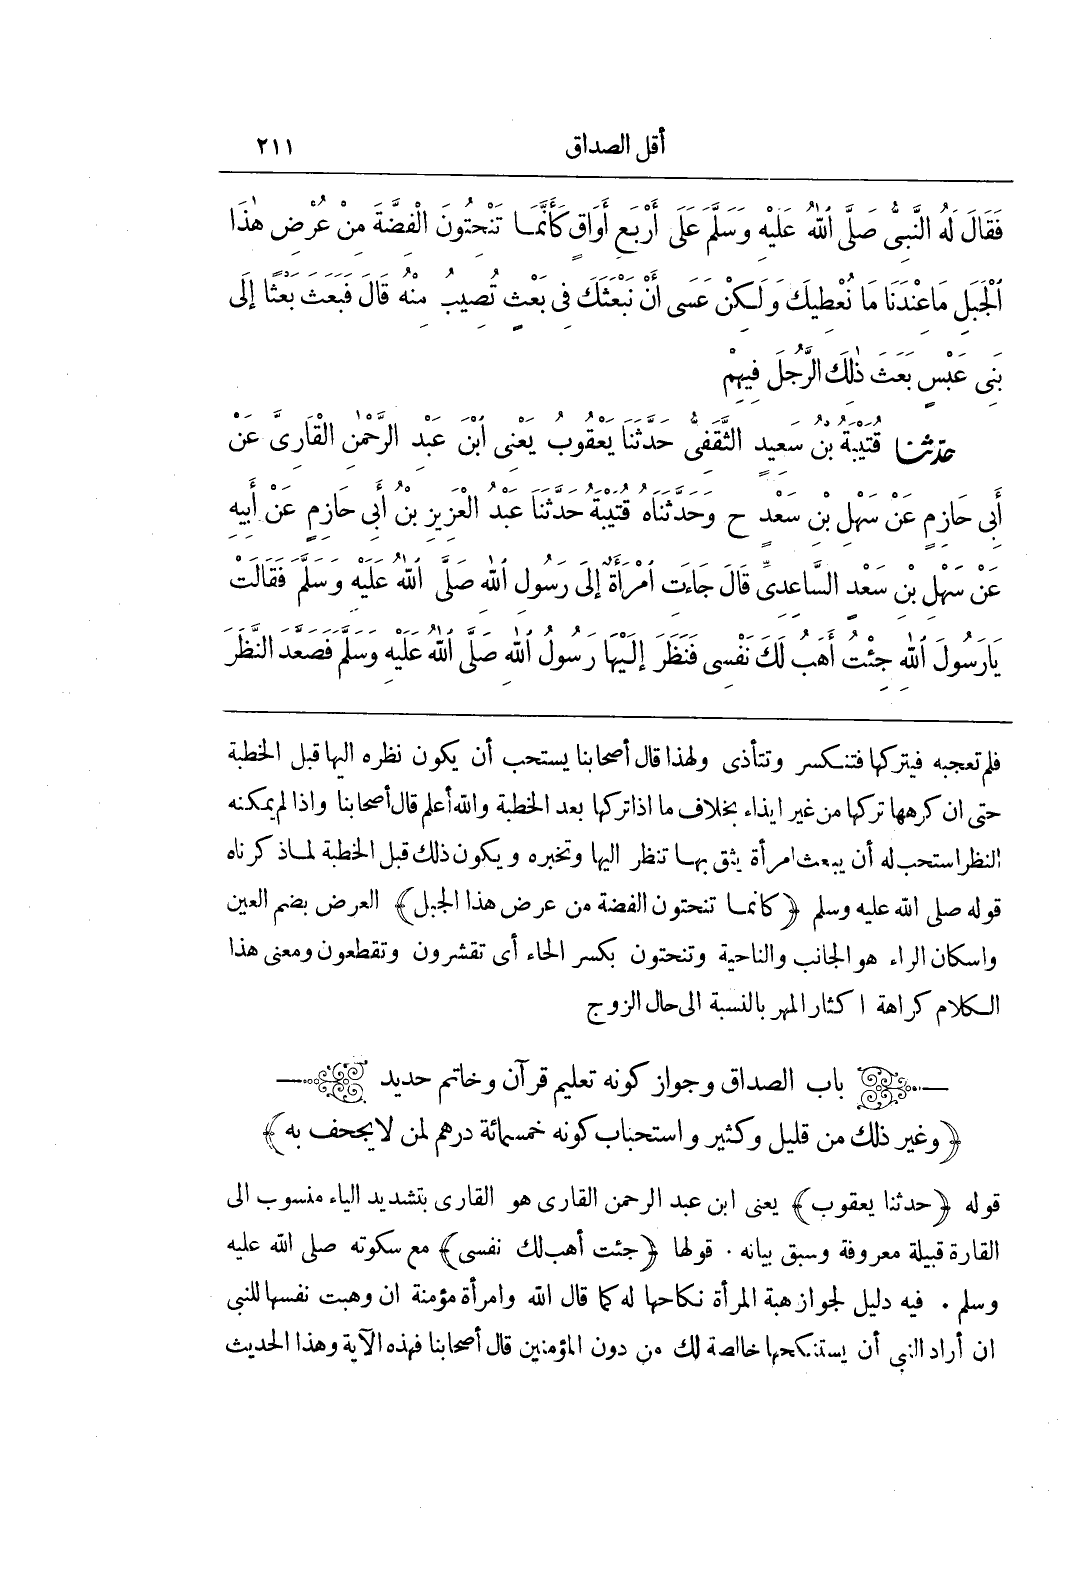 أقل الصداق ٢١١
فَقَالَ لَهُ النَّبِىُّ صَلَّى ٱللهُ عَلَيْهِ وَسَلَّمَ عَلَى أَرْبَعِ أَوَاقٍ كَأَنَّمَا تَنْحِتُونَ الْفِضَّةَ مِنْ عُرْضِ هٰذَا
ٱلْجَبَلِ مَا عِنْدَنَا مَا نُعْطِيكَ وَلَكِنْ عَسَى أَنْ نَبْعَثَكَ فِى بَعْثٍ تُصِيبُ مِنْهُ قَالَ فَبَعَثَ بَعْثًا إِلَى
بَنِى عَبْسٍ بَعَثَ ذٰلِكَ الرَّجُلَ فِيهِمْ
حَدَّثَنَا قُتَيْبَةُ بْنُ سَعِيدٍ الثَّقَفِىُّ حَدَّثَنَا يَعْقُوبُ يَعْنِى ٱبْنَ عَبْدِ الرَّحْمٰنِ الْقَارِىَّ عَنْ
أَبِى حَازِمٍ عَنْ سَهْلِ بْنِ سَعْدٍ ح وَحَدَّثَنَاهُ قُتَيْبَةُ حَدَّثَنَا عَبْدُ الْعَزِيزِ بْنُ أَبِى حَازِمٍ عَنْ أَبِيهِ
عَنْ سَهْلِ بْنِ سَعْدٍ السَّاعِدِىِّ قَالَ جَاءَتِ ٱمْرَأَةٌ إِلَى رَسُولِ ٱللهِ صَلَّى ٱللهُ عَلَيْهِ وَسَلَّمَ فَقَالَتْ
يَارَسُولَ ٱللهِ جِئْتُ أَهَبُ لَكَ نَفْسِى فَنَظَرَ إِلَيْهَا رَسُولُ ٱللهِ صَلَّى ٱللهُ عَلَيْهِ وَسَلَّمَ فَصَعَّدَ النَّظَرَ
فلم تعجبه فيتركها فتنكسر وتتأذى ولهذا قال أصحابنا يستحب أن يكون نظره اليها قبل الخطبة
حتى ان كرهها تركها من غير ايذاء بخلاف ما اذا تركها بعد الخطبة والله أعلم قال أصحابنا واذا لم يمكنه
النظر استحب له أن يبعث امرأة يثق بها تنظر اليها وتخبره ويكون ذلك قبل الخطبة لما ذكرناه
قوله صلى الله عليه وسلم ﴿كانما تنحتون الفضة من عرض هذا الجبل﴾ العرض بضم العين
واسكان الراء هو الجانب والناحية وتنحتون بكسر الحاء أى تقشرون وتقطعون ومعنى هذا
الكلام كراهة اكثار المهر بالنسبة الى حال الزوج
باب الصداق وجواز كونه تعليم قرآن وخاتم حديد
﴿وغير ذلك من قليل وكثير واستحباب كونه خمسمائة درهم لمن لايجحف به﴾
قوله ﴿حدثنا يعقوب﴾ يعنى ابن عبد الرحمن القارى هو القارى بتشديد الياء منسوب الى
القارة قبيلة معروفة وسبق بيانه . قولها ﴿جئت أهب لك نفسى﴾ مع سكوته صلى الله عليه
وسلم . فيه دليل لجواز هبة المرأة نكاحها له كما قال الله وامرأة مؤمنة ان وهبت نفسها للنبى
ان أراد النبى أن يستنكحها خالصة لك من دون المؤمنين قال أصحابنا فهذه الآية وهذا الحديث